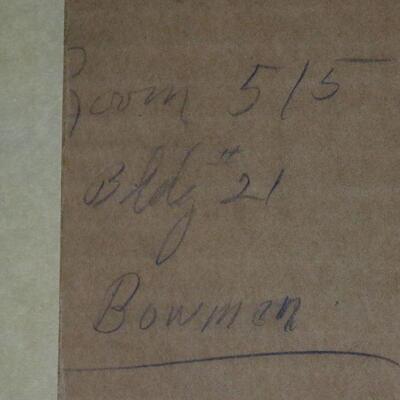 Room 515
Bldg # 21
Bowman